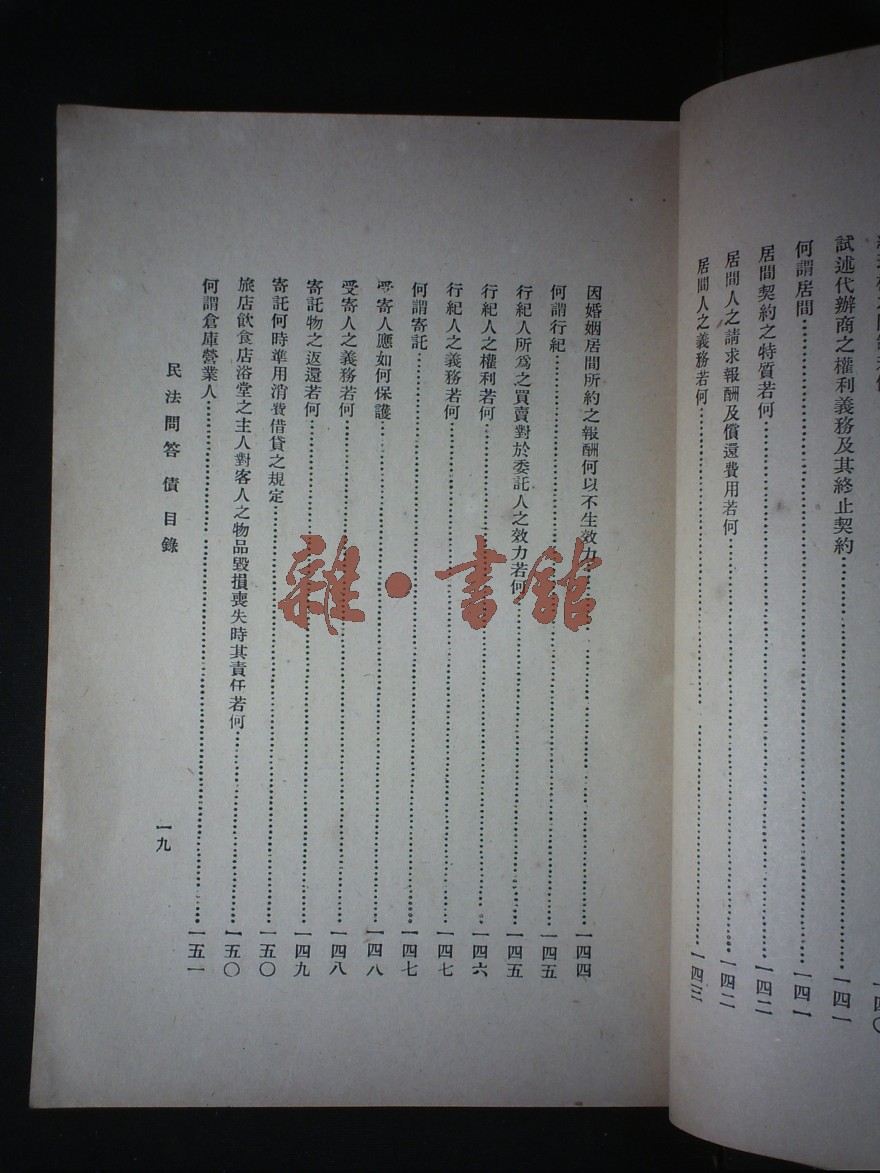 一四〇
試述代辦商之權利義務及其終止契約……一四一
何謂居間……一四一
居間契約之特質若何……一四二
居間人之請求報酬及償還費用若何……一四二
居間人之義務若何……一四三
因婚姻居間所約之報酬何以不生效力……一四四
何謂行紀……一四五
行紀人所爲之買賣對於委託人之效力若何……一四五
行紀人之權利若何……一四六
行紀人之義務若何……一四七
何謂寄託……一四七
受寄人應如何保護……一四八
受寄人之義務若何……一四八
寄託物之返還若何……一四九
寄託何時準用消費借貸之規定……一五〇
旅店飲食店浴堂之主人對客人之物品毀損喪失時其責任若何……一五〇
何謂倉庫營業人……一五一
民法問答 債 目錄
一九
雜·書館